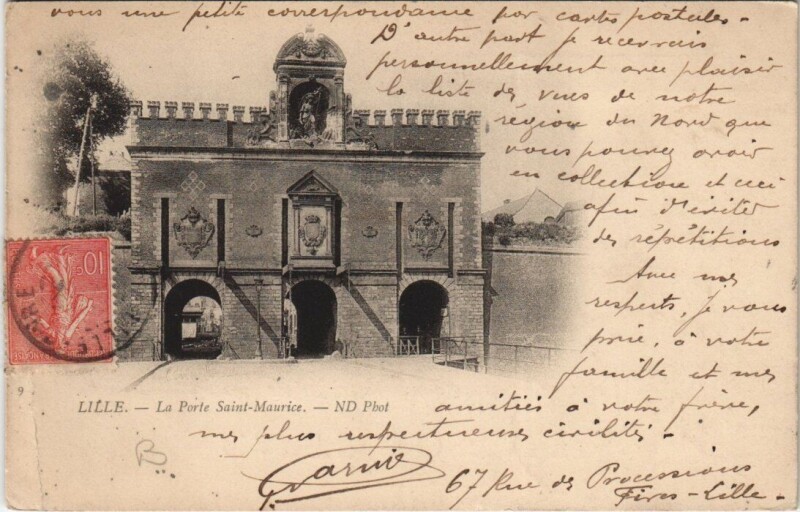 vous une petite correspondance par cartes postales -
D'autre part je recevrais
personnellement avec plaisir
la liste des vues de notre
région du Nord que
vous pouvez avoir
en collection et ceci
afin d'éviter
des répétitions
Avec mes
respects, je vous
prie, à votre
famille et mes
amitiés à votre frère,
mes plus respectueuses civilités -
67 Rue des Processions
Fives - Lille -
10c
LILLE. — La Porte Saint-Maurice. — ND Phot
9
B